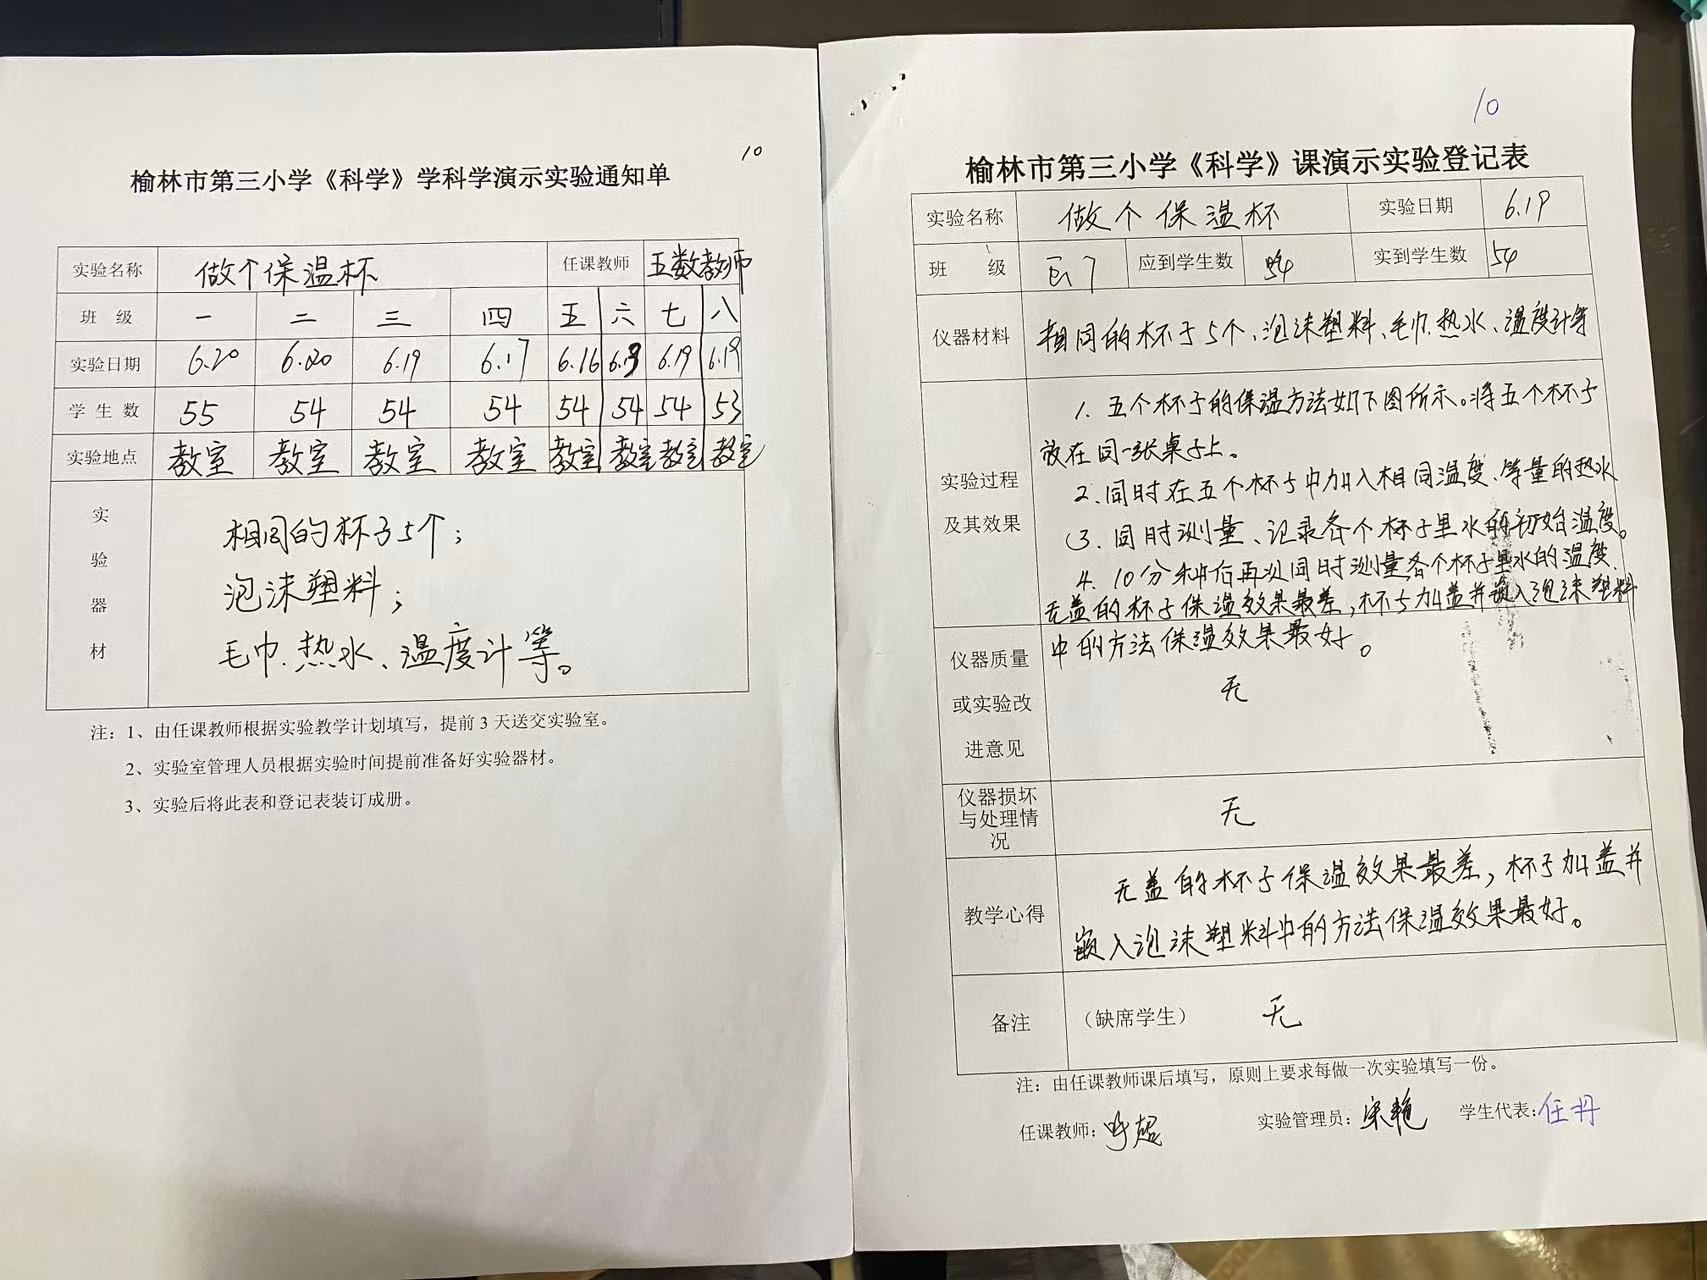 10
榆林市第三小学《科学》学科学演示实验通知单
实验名称 做个保温杯 任课教师 五数教师
班 级 一 二 三 四 五 六 七 八
实验日期 6.20 6.20 6.19 6.17 6.16 6.13 6.19 6.19
学 生 数 55 54 54 54 54 54 54 53
实验地点 教室 教室 教室 教室 教室 教室 教室 教室
实验器材
相同的杯子5个;
泡沫塑料;
毛巾、热水、温度计等。
注：1、由任课教师根据实验教学计划填写，提前 3 天送交实验室。
2、实验室管理人员根据实验时间提前准备好实验器材。
3、实验后将此表和登记表装订成册。
10
榆林市第三小学《科学》课演示实验登记表
实验名称 做个保温杯 实验日期 6.19
班 级 五7 应到学生数 54 实到学生数 54
仪器材料 相同的杯子5个、泡沫塑料、毛巾、热水、温度计等
实验过程
及其效果
1. 五个杯子的保温方法如下图所示。将五个杯子
放在同一张桌子上。
2. 同时在五个杯子中加入相同温度、等量的热水
3. 同时测量、记录各个杯子里水的初始温度。
4. 10分钟后再次同时测量各个杯子里水的温度.
无盖的杯子保温效果最差,杯子加盖并嵌入泡沫塑料
中的方法保温效果最好。
仪器质量
或实验改
进意见
无
仪器损坏
与处理情
况
无
教学心得
无盖的杯子保温效果最差,杯子加盖并
嵌入泡沫塑料中的方法保温效果最好。
备注 （缺席学生） 无
注：由任课教师课后填写，原则上要求每做一次实验填写一份。
任课教师: 实验管理员: 宋艳 学生代表: 任丹